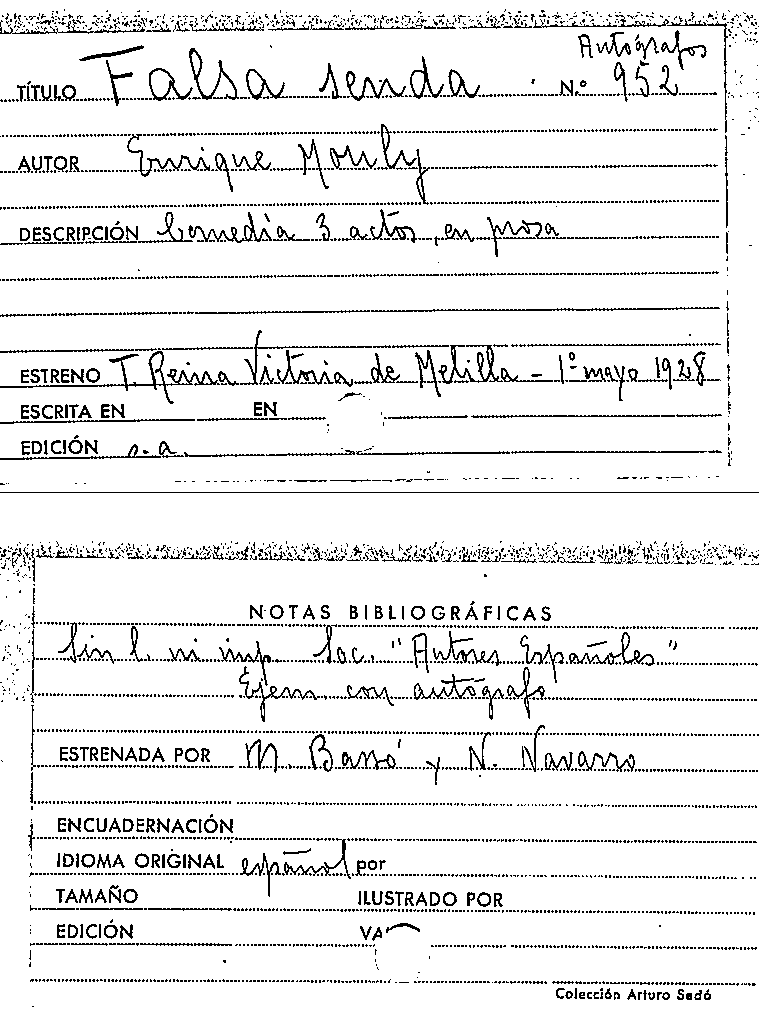 Autógrafos
TÍTULO Falsa senda N.º 952
AUTOR Enrique Mouly
DESCRIPCIÓN Comedia 3 actos, en prosa
ESTRENO T. Reina Victoria de Melilla - 1º mayo 1928
ESCRITA EN EN
EDICIÓN s.a.
NOTAS BIBLIOGRÁFICAS
Sin l. ni imp. Soc. "Autores Españoles"
Ejem. con autógrafo
ESTRENADA POR M. Bassó y N. Navarro
ENCUADERNACIÓN
IDIOMA ORIGINAL español por
TAMAÑO ILUSTRADO POR
EDICIÓN VA
Colección Arturo Sedó